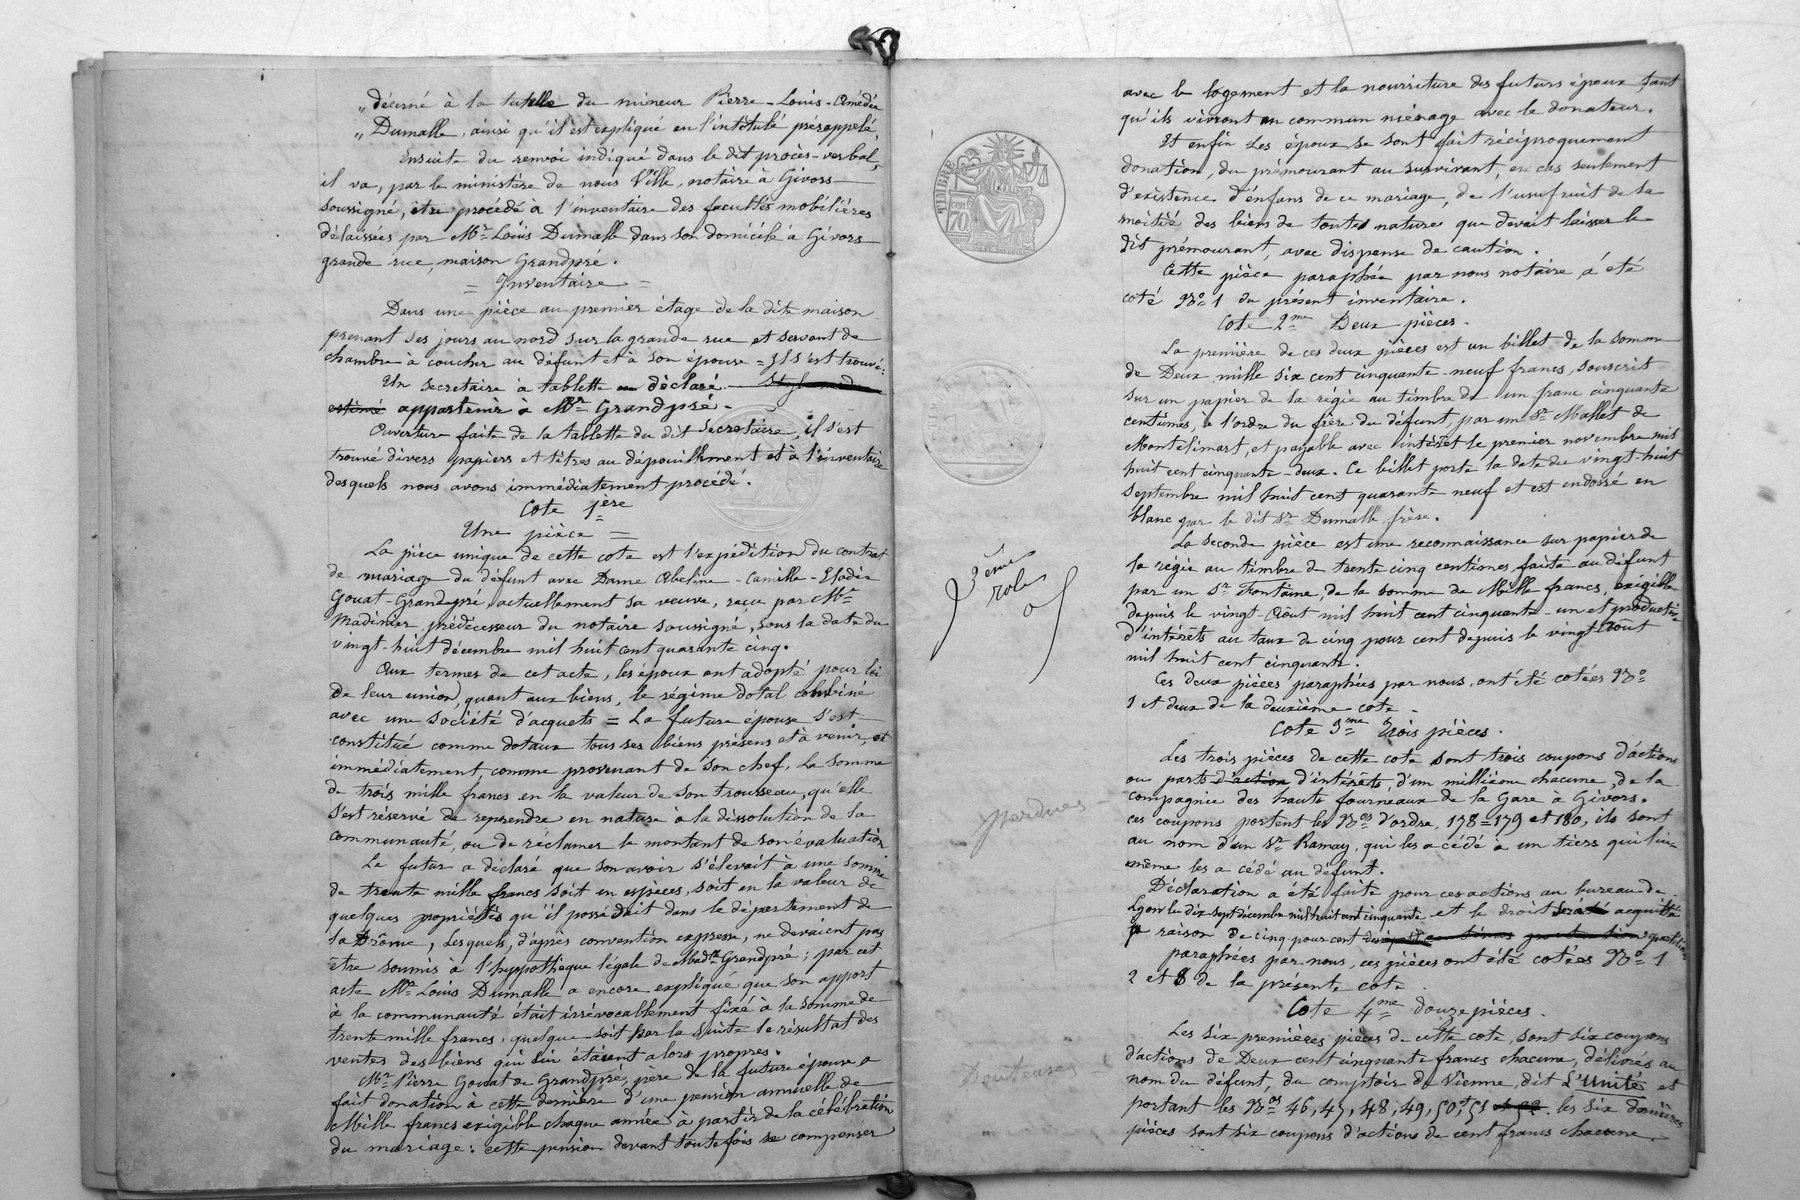 „ décerné à la tutelle du mineur Pierre-Louis-Amédée
„ Dumalle, ainsi qu'il est expliqué en l'intitulé présappelé
Ensuite du renvoi indiqué dans le dit procès-verbal,
il va, par le ministère de nous Ville, notaire à Givors
soussigné, être procédé à l'inventaire des facultés mobilières
délaissées par Mr Louis Dumalle dans son domicile à Givors
grande rue, maison Grandpré.
= Inventaire =
Dans une pièce au premier étage de la dite maison
prenant ses jours au nord sur la grande rue et servant de
chambre à coucher au défunt et à son épouse = Il s'est trouvé:
Un secretaire à tablette déclaré
estimé appartenir à Mr Grandpré.
Ouverture faite de la tablette du dit Secretaire, il s'est
trouvé divers papiers et titres au dépouillement et à l'inventaire
desquels nous avons immédiatement procédé.
Cote 1ère
Une pièce =
La pièce unique de cette cote est l'expédition du contrat
de mariage du défunt avec Dame Abeline-Camille-Eladie
Gouat-Grandpré, actuellement sa veuve, reçu par Me
Madinier, prédécesseur du notaire soussigné, sous la date du
vingt-huit décembre mil huit cent quarante cinq.
Aux termes de cet acte, les époux ont adopté pour loi
de leur union, quant aux biens, le régime dotal combiné
avec une société d'acquets = La future épouse s'est
constitué comme dotaux tous ses biens présens et à venir, et
immédiatement, comme provenant de son chef, la somme
de trois mille francs en la valeur de son trousseau, qu'elle
s'est réservé de reprendre en nature à la dissolution de la
communauté, ou de réclamer le montant de son évaluation
Le futur a déclaré que son avoir s'élevait à une somme
de trente mille francs soit en espèces, soit en la valeur de
quelques propriétés qu'il possédait dans le département de
la Drôme, lesquels, d'après convention expresse, ne devaient pas
être soumis à l'hypothèque légale de Made Grandpré; par cet
acte Mr Louis Dumalle a encore expliqué que son apport
à la communauté était irrévocablement fixé à la somme de
trente mille francs, quelque soit par la suite le résultat des
ventes des biens qui lui étaient alors propres.
Mr Pierre Gouat de Grandpré, père de la future épouse a
fait donation à cette dernière d'une pension annuelle de
Mille francs exigible chaque année à partir de la célébration
du mariage: cette pension devant toutefois se compenser
avec le logement et la nourriture des futurs époux tant
qu'ils vivront en commun ménage avec le donateur.
Et enfin les époux se sont fait réciproquement
donation, du prémourant au survivant, en cas seulement
d'existence d'enfans de ce mariage, de l'usufruit de la
moitié des biens de toutes natures que devait laisser le
dit prémourant, avec dispense de caution.
Cette pièce paraphée par nous notaire, a été
coté No 1 du présent inventaire.
Cote 2me Deux pièces.
La première de ces deux pièces est un billet de la somme
de Deux mille six cent cinquante-neuf francs, souscrit
sur un papier de la régie au timbre de un franc cinquante
centimes, à l'ordre du frère du défunt, par un Sr Mallet de
Montelimart, et payable avec intérêt le premier novembre mil
huit cent cinquante-deux. Ce billet porte la date du vingt-huit
septembre mil huit cent quarante neuf et est endossé en
blanc par le dit Sr Dumalle frère.
La seconde pièce est une reconnaissance sur papier de
la régie au timbre de trente cinq centimes faite au défunt
par un Sr Fontaine, de la somme de Mille francs, exigible
depuis le vingt-Août mil huit cent cinquante-un et productive
d'intérêts au taux de cinq pour cent depuis le vingt Août
mil huit cent cinquante.
Ces deux pièces paraphées par nous, ont été cotées No
1 et deux de la deuxième cote.
Cote 3me Trois pièces.
Les trois pièces de cette cote sont trois coupons d'actions
ou parts d'action d'intérêts, d'un millième chacune, de la
compagnie des hauts fourneaux de la Gare à Givors.
ces coupons portent les Nos d'ordre, 178=179 et 180, ils sont
au nom d'un Sr Ramay, qui les a cédé à un tiers qui lui
même les a cédé au défunt.
Déclaration a été faite pour ces actions au bureau de
Lyon le dix sept décembre mil huit cent cinquante et le droit acquitté
à raison de cinq pour cent
paraphées par nous, ces pièces ont été cotées No 1
2 et 3 de la présente cote.
Cote 4me douze pièces.
Les six premières pièces de cette cote, sont six coupons
d'actions de Deux cent cinquante francs chacune, délivrés au
nom du défunt, du comptoir de Vienne, dit L'Unité et
portant les Nos 46, 47, 48, 49, 50, 51 les six dernières
pièces sont six coupons d'actions de cent francs chacune
TIMBRE
70
3ème
role
perdues
Douteuses